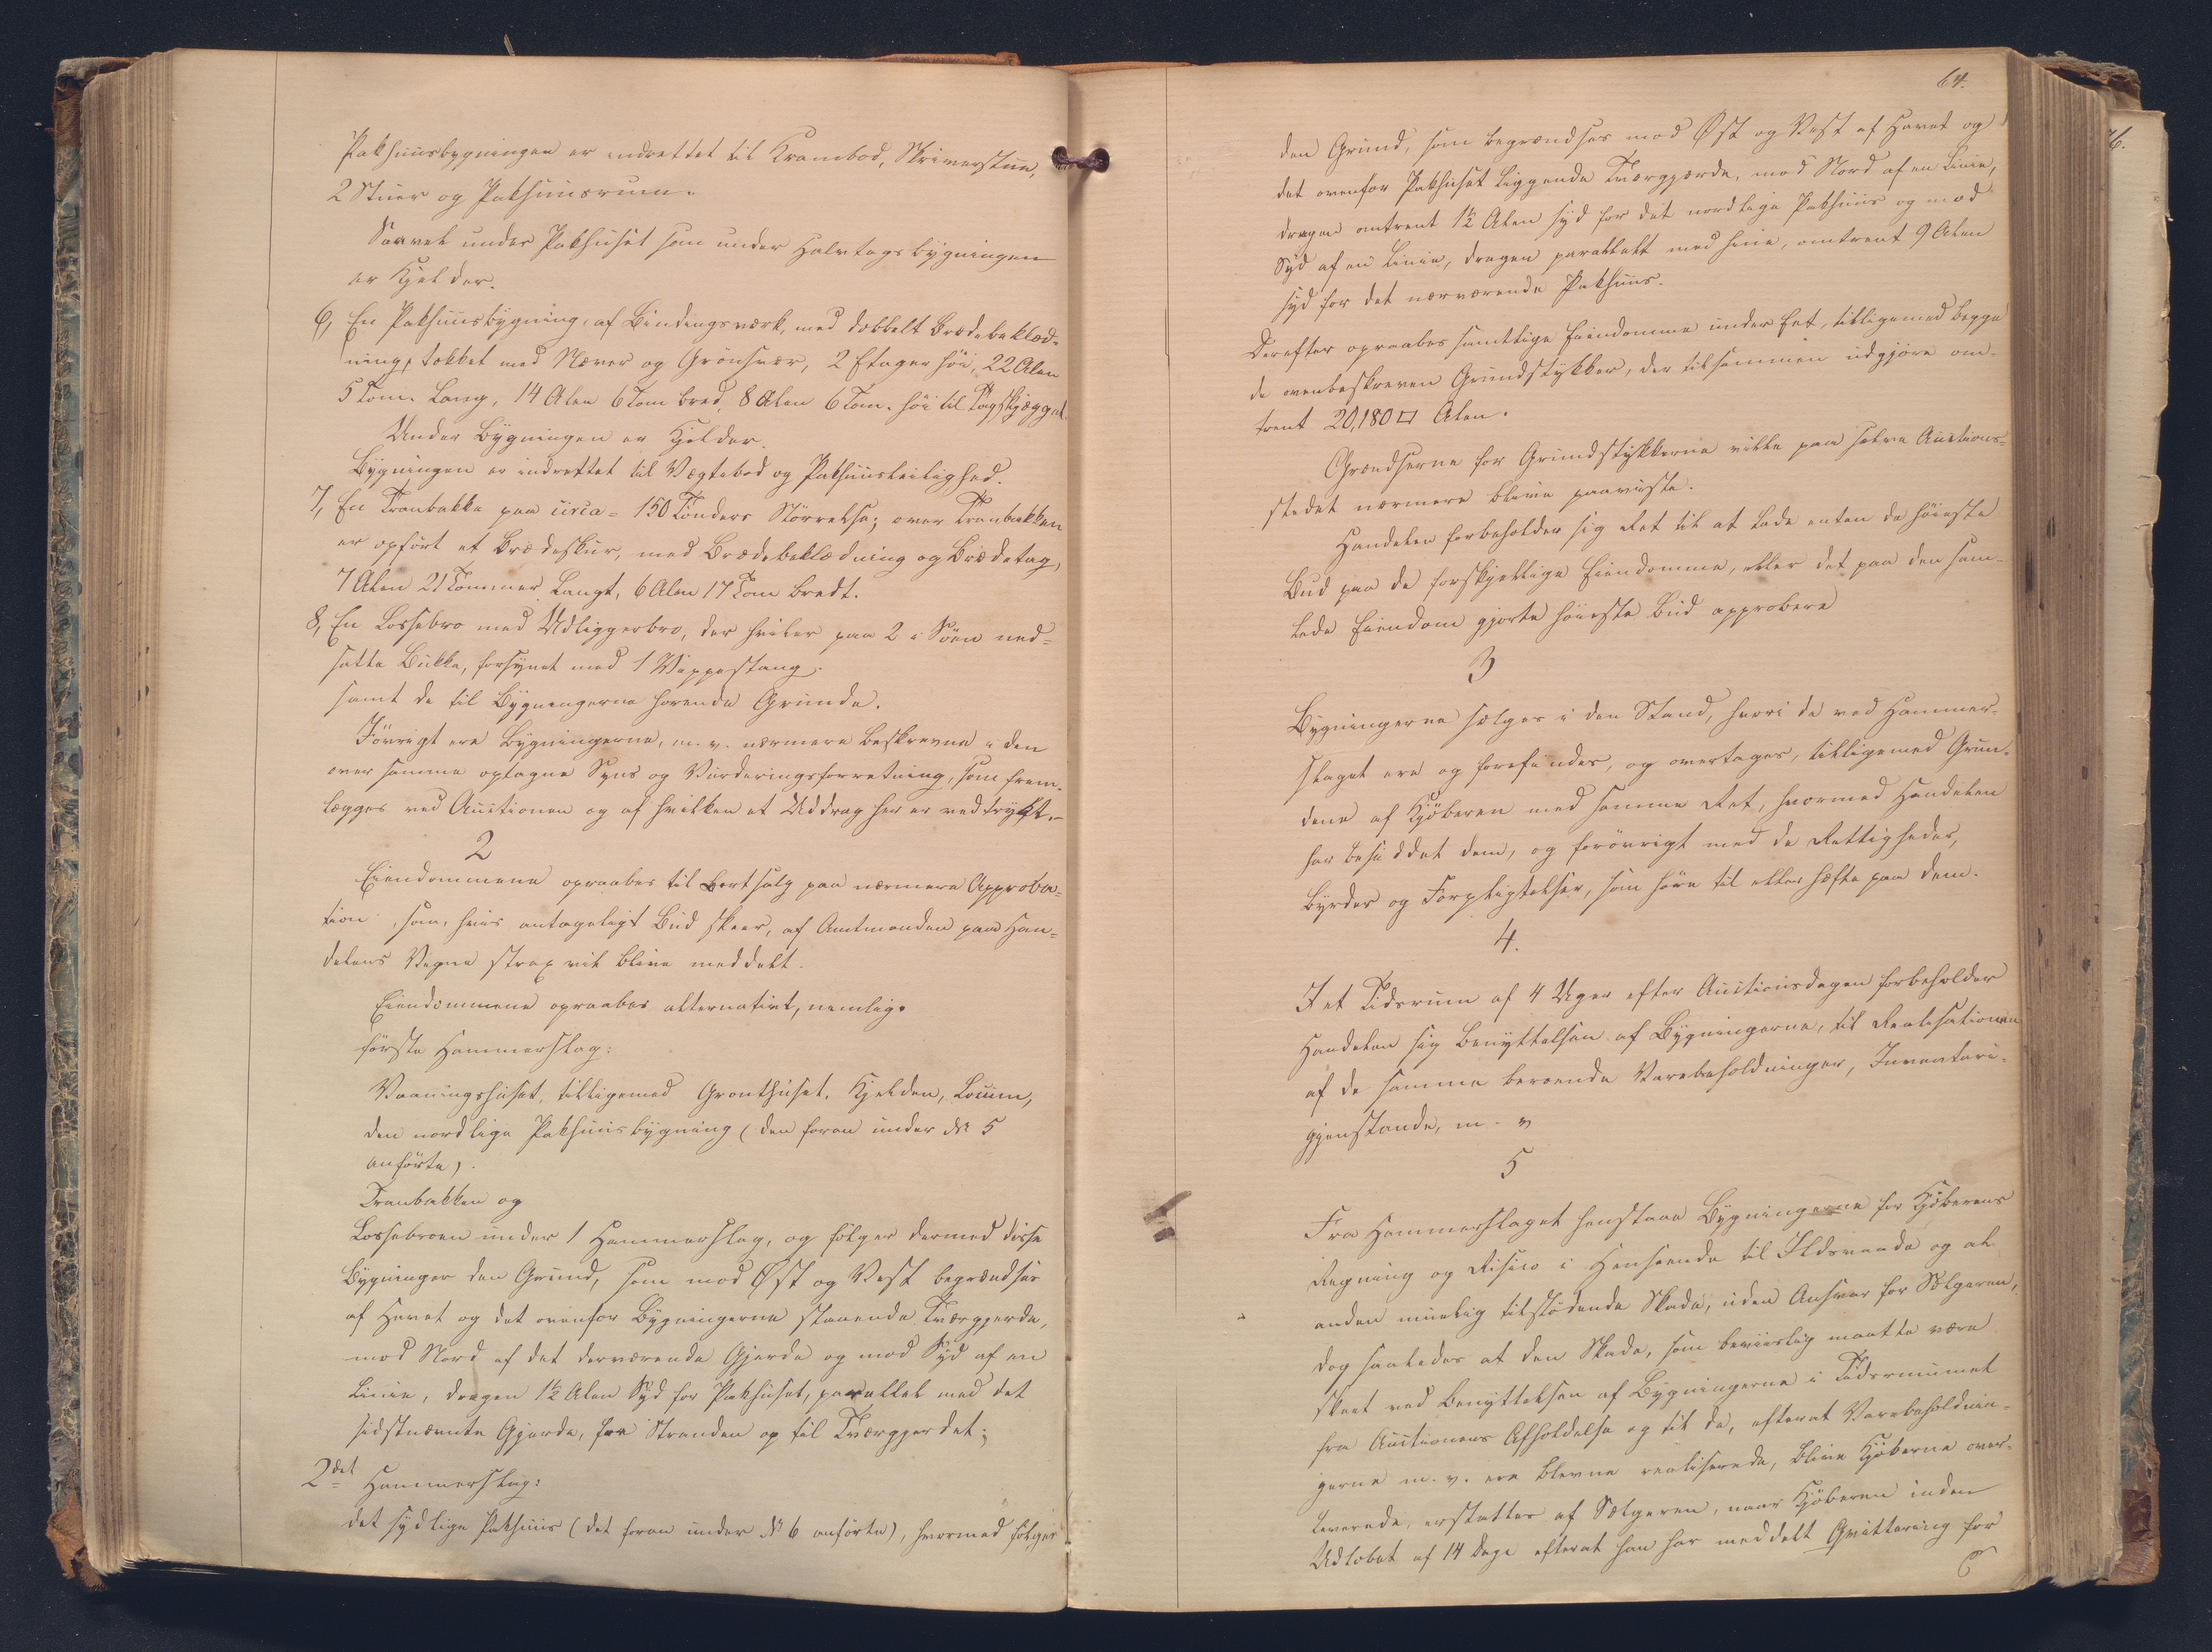 Pakhuusbygningen er indrettet til Krambod, Skriverstue,
2 Stuer og Pakhuusrum.
Saavel under Pakhuset som under Halvtagsbygningen
er Kjelder.
6, En Pakhuusbygning, af Bindingsværk, med dobbelt Brædebeklæd=
ning, tækket med Næver og Grönsvær, 2 Etager høi, 22 Alen
5 Tom. lang, 14 Alen 6 Tom bred, 8 Alen 6 Tom. høi til Tagskjægget.
Under Bygningen er Kjelder.
Bygningen er indrettet til Vægtebod og Pakhuusleilighed.
7, En Tranbakke paa circa = 150 Tönders Störrelse; over Tranbakken
er opfört et Brædeskur, med Brædebeklædning og Brædetag,
7 Alen 21 Tommer langt, 6 Alen 17 Tom bredt.
8, En Lossebro med Udliggerbro, der hviler paa 2 i Söen ned=
satte Bukke, forsynet med 1 Vippestang.
samt de til Bygningerne hørende Grunde.
Iövrigt ere Bygningerne, m. v. nærmere beskrevne i den
over samme optagne Syns og Vurderingsforretning, som frem-
lægges ved Auctionen og af hvilken et Uddrag her er vedtrykt.-
2
Eiendommene opraabes til Bortsalg paa nærmere Approba=
tion, som, hvis antageligt Bud skeer, af Amtmanden paa Han=
delens Vegne strax vil blive meddelt.
Eiendommene opraabes alternativt, nemlig.
förste Hammerslag:
Vaaningshuset, tilligemed Grønthuset, Kjelden, Locum,
den nordlige Pakhuusbygning (den foran under № 5
anförte).
Tranbakken og
Lossebroen under 1 Hammerslag, og fölger dermed disse
Bygninger den Grund, som mod Øst og Vest begrændses
af Havet og det ovenfor Bygningerne staaende Tværgjerde,
mod Nord af det derværende Gjerde og mod Syd af en
Linie, dragen 1½ Alen Syd for Pakhuset, parallel med det
sidstnævnte Gjerde, fra Stranden op til Tværgjerdet;
2det Hammerslag:
det sydlige Pakhuus (det foran under № 6 anförte), hvormed fölger
64.
den Grund, som begrændses mod Øst og Vest af Havet og
det ovenfor Pakhuset liggende Tværgjerde, mod Nord af en Linie,
dragen omtrent 1½ Alen syd for det nordlige Pakhuus og mod
Syd af en Linie, dragen parallelt med hiin, omtrent 9 Alen
syd for det nærværende Pakhuus.
Derefter opraabes samtlige Eiendomme under Eet, tilligemed begge
de ovenbeskreven Grundstykker, der tilsammen udgjöre om-
trent 20,180 □ Alen.
Grændserne for Grundstykkerne ville paa selve Auctions=
stedet nærmere blive paaviiste.
Handelen forbeholder sig Ret til at lade enten de höieste
Bud paa de forskjellige Eiendomme, eller det paa den sam-
lede Eiendom gjorte höieste Bud approbere
3
Bygningerne sælges i den Stand, hvori de ved Hammer-
slaget ere og forefindes, og overtages, tilligemed Grun-
dene af Kjöberen med samme Ret, hvormed Handelen
har besiddet dem, og forövrigt med de Rettigheder,
Byrder og Forpligtelser, som höre til eller hæfte paa dem.
4.
I et Tidsrum af 4 Uger efter Auctionsdagen forbeholder
Handelen sig Benyttelsen af Bygningerne, til Realisationen
af de samme beroende Varebeholdninger, Inventari-
gjenstande, m. v
5
Fra Hammerslaget henstaae Bygningerne for Kjöberens
Regning og Risico i Henseende til Ildsvaade og al
anden muelig tilstödende Skade, uden Ansvar for Sælgeren,
dog saaledes at den Skade, som beviislig maatte være
skeet ved Benyttelsen af Bygningerne i Tidsrummet
fra Auctionens Afholdelse og til de, efterat Varebeholdnin-
gerne m. v. ere blevne realiserede, blive Kjöberne over-
leverede, erstattes af Sælgeren, naar Kjöberen inden
Udlöbet af 14 Dage efterat han har meddelt Qvittering for